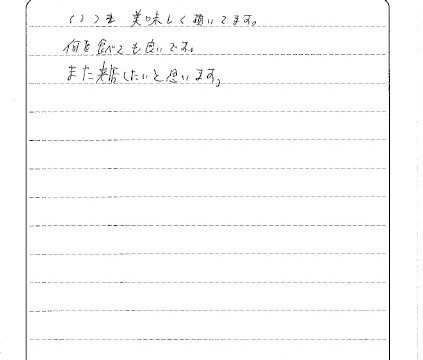 いつも美味しく頂いてます。
何を食べても良いです。
また来店したいと思います。